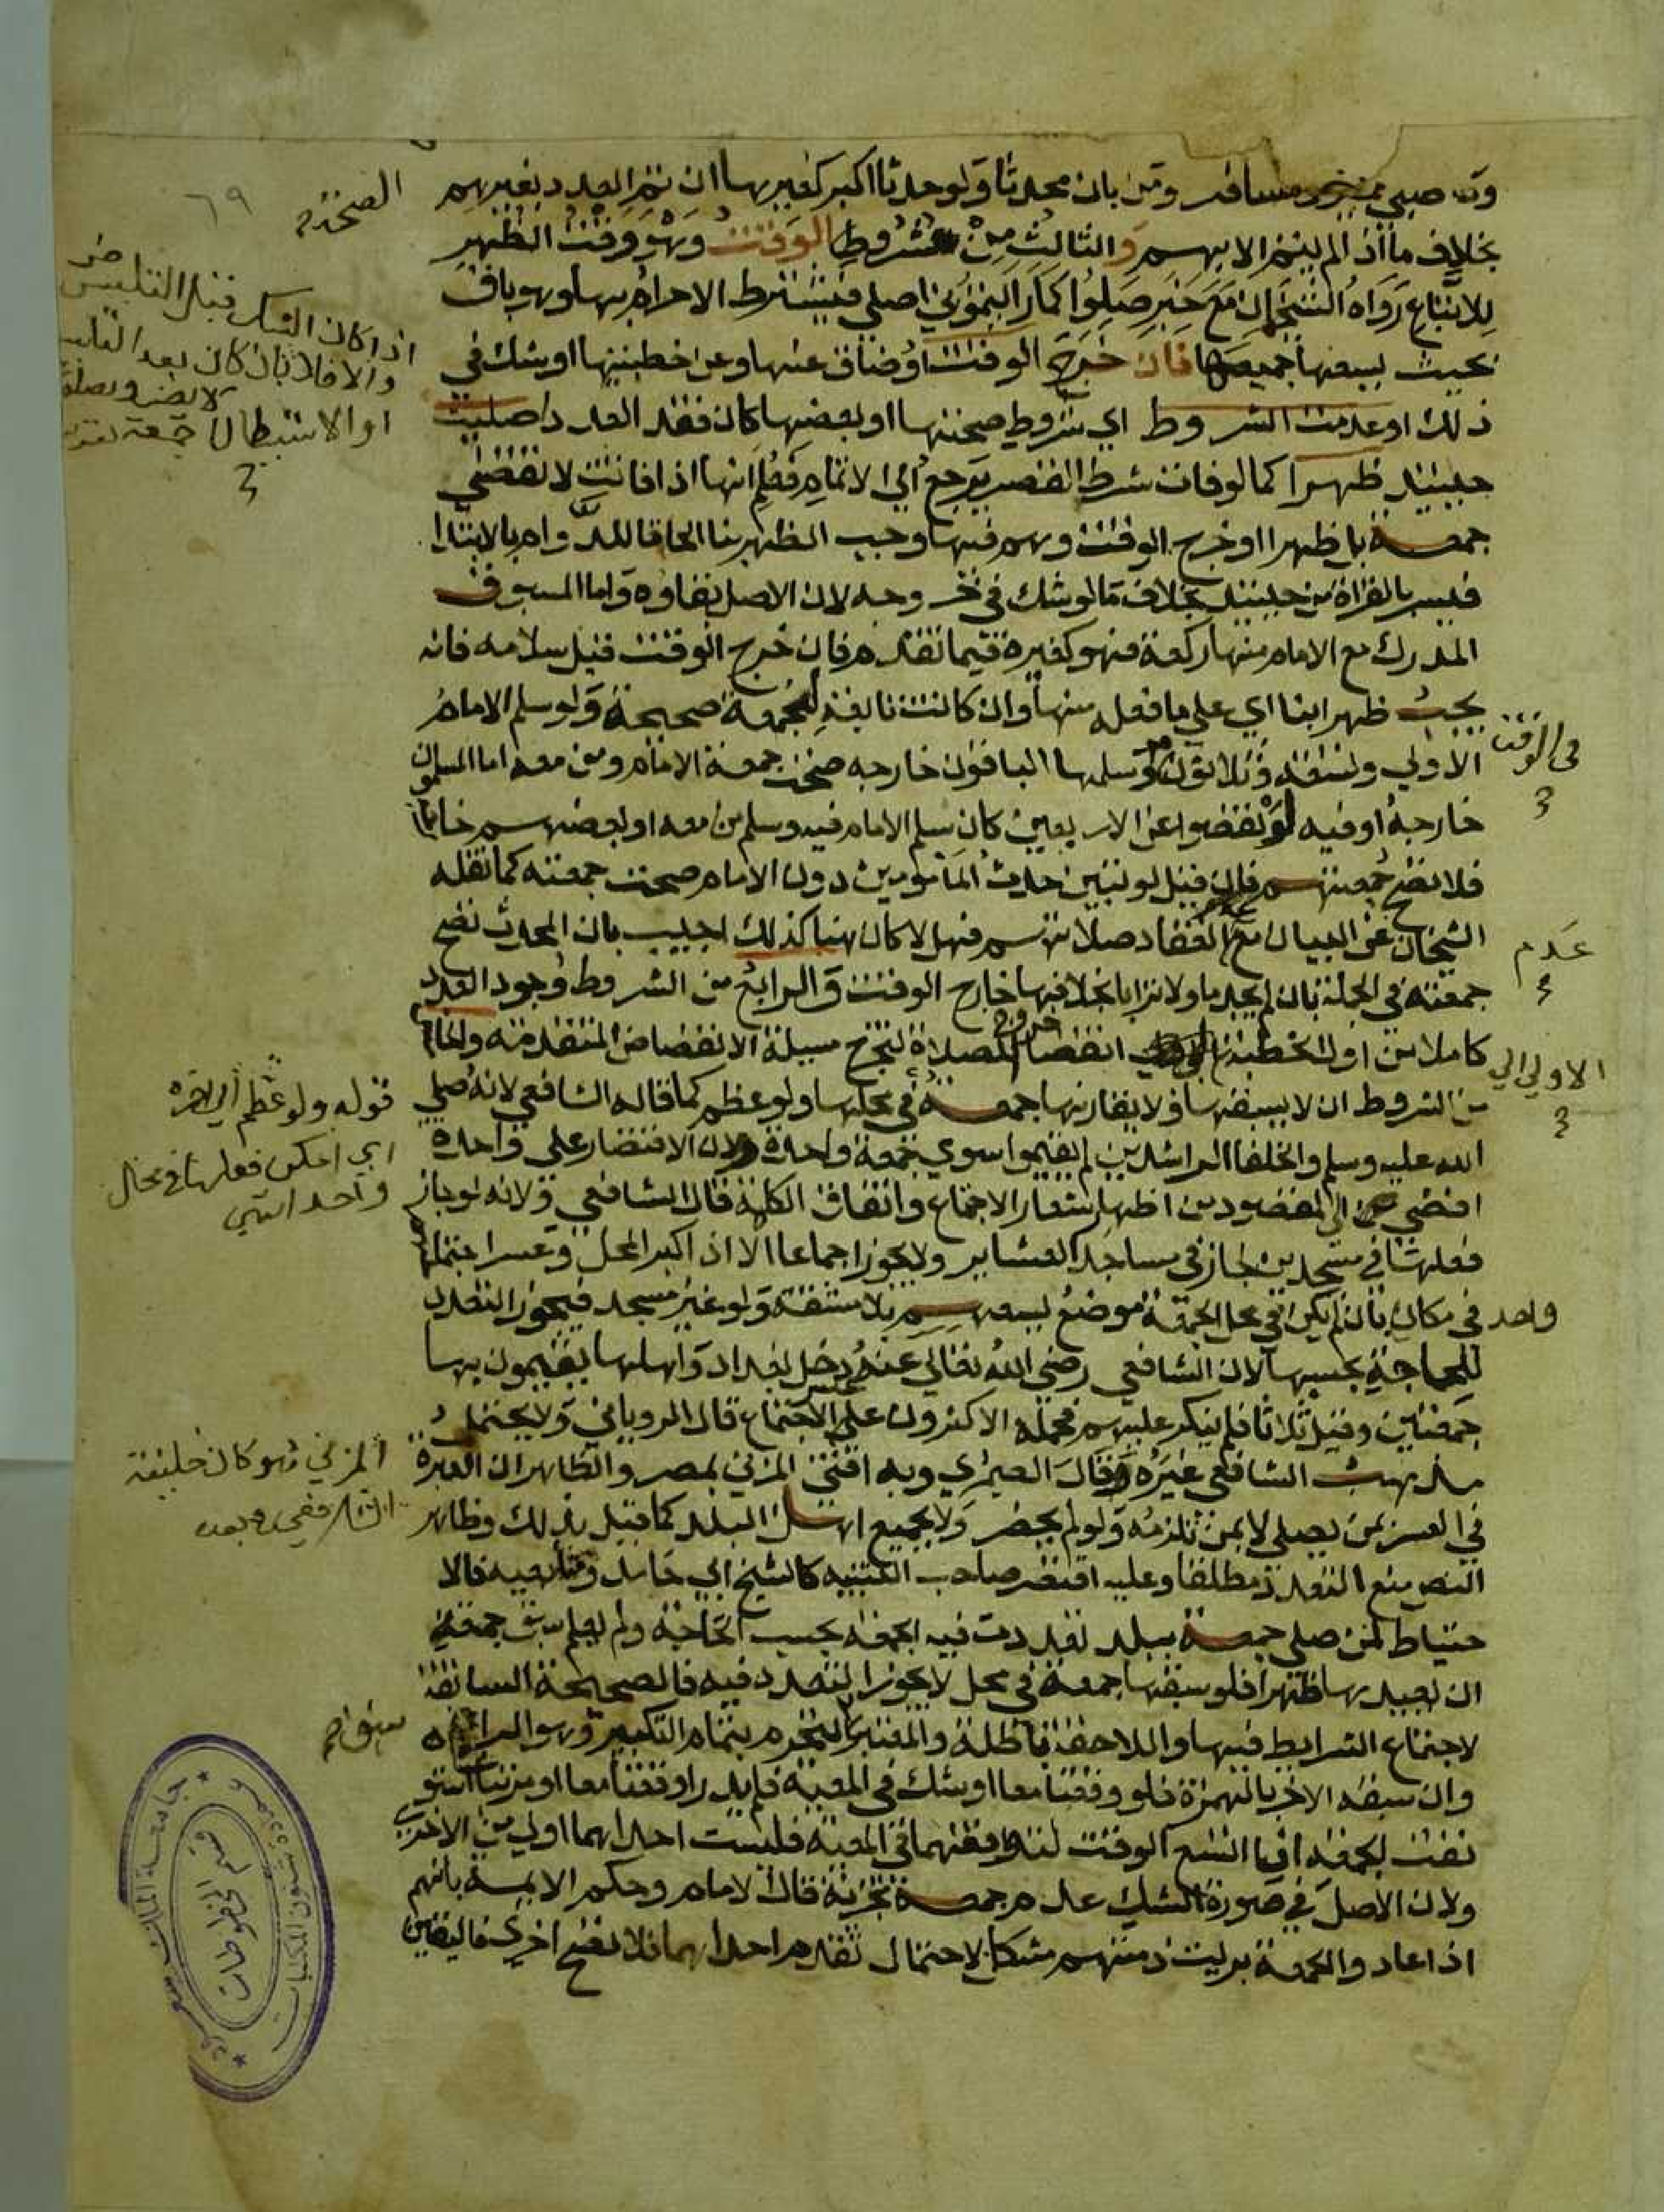 وقن صبي مميز ومسافر ومن بان محدثا ولو حدثا اكبر كغيرها ان تم العدد بغيرهم
بخلاف ما اذا لم يتم الا بهم والثالث من شروط الوقت وهو وقت الظهر
للاتباع رواه الشيخان مع خبر صلوا كما رايتموني اصلي فيشترط الاحرام بها وهو باق
بحيث يسعها جميعها فان خرج الوقت اوضاق عنها وعن خطبتيها او شك في
ذلك او عدمت الشروط اي شروط صحتها او بعضها كان فقد العدد صليت
حينئذ ظهرا كما لو فات شرط القصر يرجع الي الاتمام فعلم انها اذا فاتت لا تقضي
جمعة بل ظهرا او خرج الوقت وهم فيها وجب الظهر بنا الحاقا للدوام بالابتدا
فيسر بالقراة من حينئذ بخلاف ما لو شك في خروجه لان الاصل بقاوه واما المسبوق
المدرك مع الامام منها ركعة فهو كغيره فيما تقدم فان خرج الوقت قبل سلامه فانه
يجب ظهر ابنا اي علي ما فعله منها وان كانت تابعة لجمعة صحيحة ولو سلم الامام
الاولي وتسعة وثلاثون في الوقت وسلمها الباقون خارجه صحت جمعة الامام ومن معه اما المسلمون
خارجه اوفيه لو نقصوا عن الاربعين كان سلم الامام فيه وسلم من معه او بعضهم خارجه
فلا تصح جمعتهم فان قيل لو تبين حدث المامومين دون الامام صحت جمعته كما نقله
الشيخان عن البيان مع عدم انعقاد صلاتهم فهلا كان هنا كذلك اجيب بان المحدث تصح
جمعته في الجملة بان لم يجد ما ولا ترابا بخلافها خارج الوقت والرابع من الشروط وجود العدد
كاملا من اول الخطبة الاولي الي انقضا الصلاة لتخرج مسيلة الانفضاض المتقدمة والخامس
من الشروط ان لا يسبقها ولا يقارنها جمعة في محلها ولو عظم كما قاله الشافعي لانه صلي
الله عليه وسلم والخلفا الراشدين لم يقيموا سوي جمعة واحدة ولان الاقتصار علي واحدة
افضي الي المقصود من اظهار شعار الاجتماع واتفاق الكلمة قال الشافعي ولانه لو جاز
فعلها في مسجدين لجاز في مساجد العشاير ولا يجوز اجماعا الا اذا كبر المحل وعسر اجتماعهم
في مكان واحد بان لم يكن في محل الجمعة موضع يسعهم بلا مشقة ولو غير مسجد فيجوز التعدد
للحاجة بحسبها لان الشافعي رضي الله تعالي عنه دخل بغداد واهلها يقيمون بها
جمعتين وقيل ثلاثا فلم ينكر عليهم فحمله الاكثرون علي عسر الاجتماع قال الروياني ولا يحتمل
مذهب الشافعي غيره وقال الصيمري وبه افتي المزني بمصر والظاهر ان العبرة
في العسر بمن يصلي لا بمن تلزمه ولو لم يحضر ولا بجميع اهل البلد كما قيل بذلك وظاهر
النص منع التعدد مطلقا وعليه اقتصر صاحب التنبيه كالشيخ ابي حامد ومتابعيه فالا
حتياط لمن صلي جمعة ببلد تعددت فيه الجمعة بحسب الحاجة ولم يعلم سبق جمعته
ان يعيدها ظهرا فلو سبقها جمعة في محل لا يجوز التعدد فيه فالصحيحة السابقة
لاجتماع الشرايط فيها واللاحقة باطلة والمعتبر سبق التحرم بتمام التكبير وهو الرا
وان سبقه الاخر بالهمزة فلو وقعتا معا او شك في المعية فلم يدر اوقعتا معا او مرتبا استو
نفت الجمعة ان اتسع الوقت لتوافقهما في المعية فليست احداهما اولي من الاخري
ولان الاصل في صورة الشك عدم جمعة مجزئة قال الامام وحكم الايمة بانهم
اذا اعادوا الجمعة بريت ذمتهم مشكل لاحتمال تقدم احداهما فلا تصح اخري فاليقين
٦٩
الصحة
اذا كان الشك قبل التلبس
والا فلا بان كان بعد التلبس
لا يضر
او الاستيطان
في الوقت
عدم
الاولي الي
قوله ولو عظم الي اخره
اي امكن فعلها في محال
واحد انتهي
واحد
المزني وهو كان خليفة
الشافعي بعده
جامعة الملك سعود
قسم المخطوطات